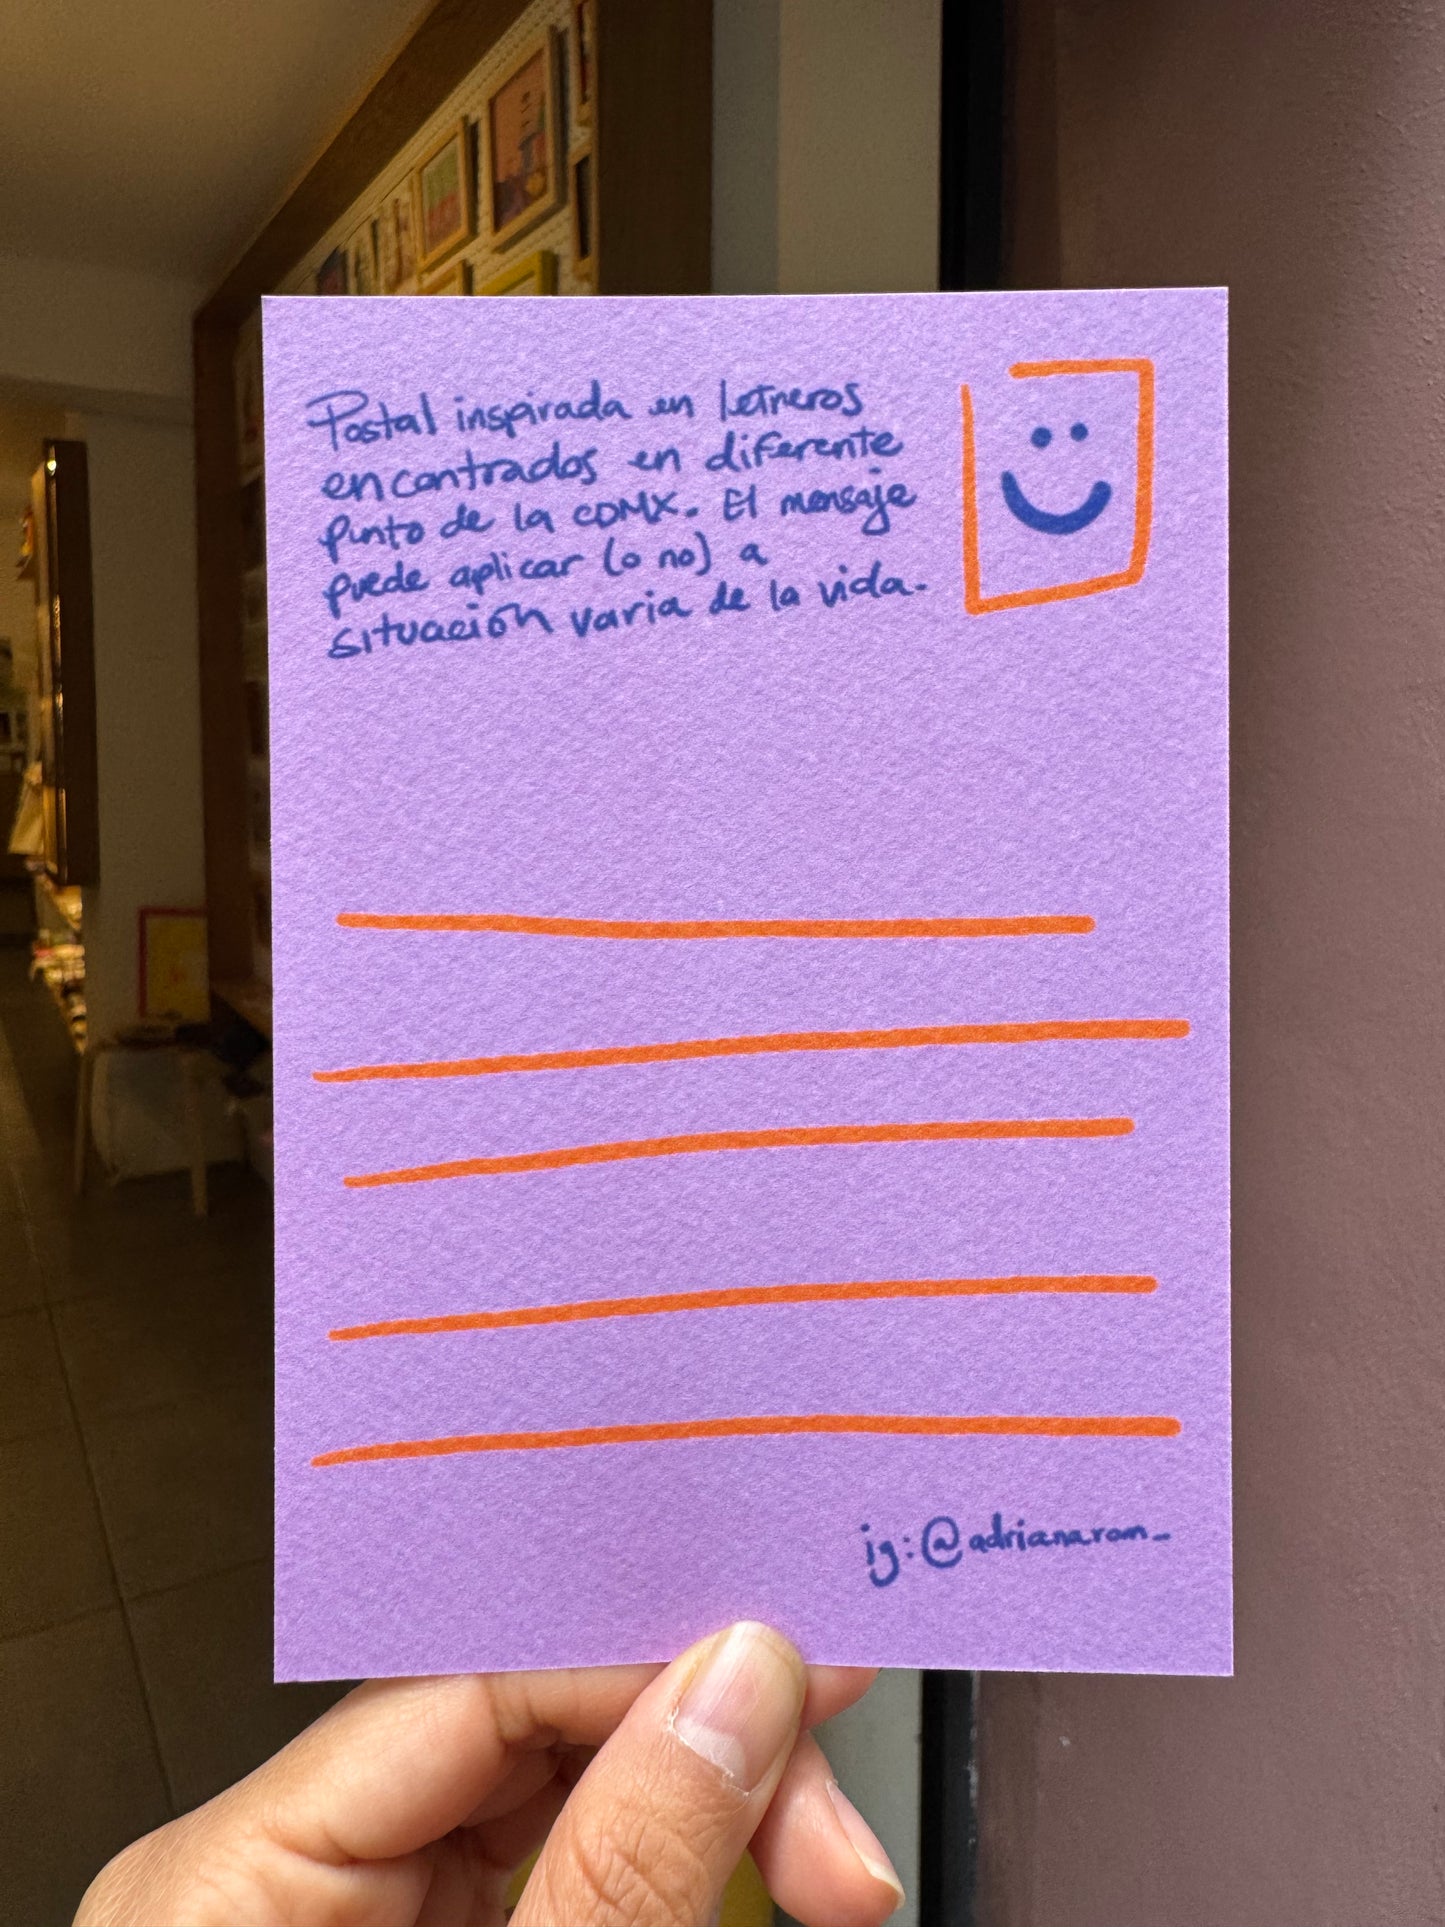 Postal inspirada en letreros
encontrados en diferente
punto de la CDMX. El mensaje
puede aplicar (o no) a
situación varia de la vida.
ig:@adrianarom_